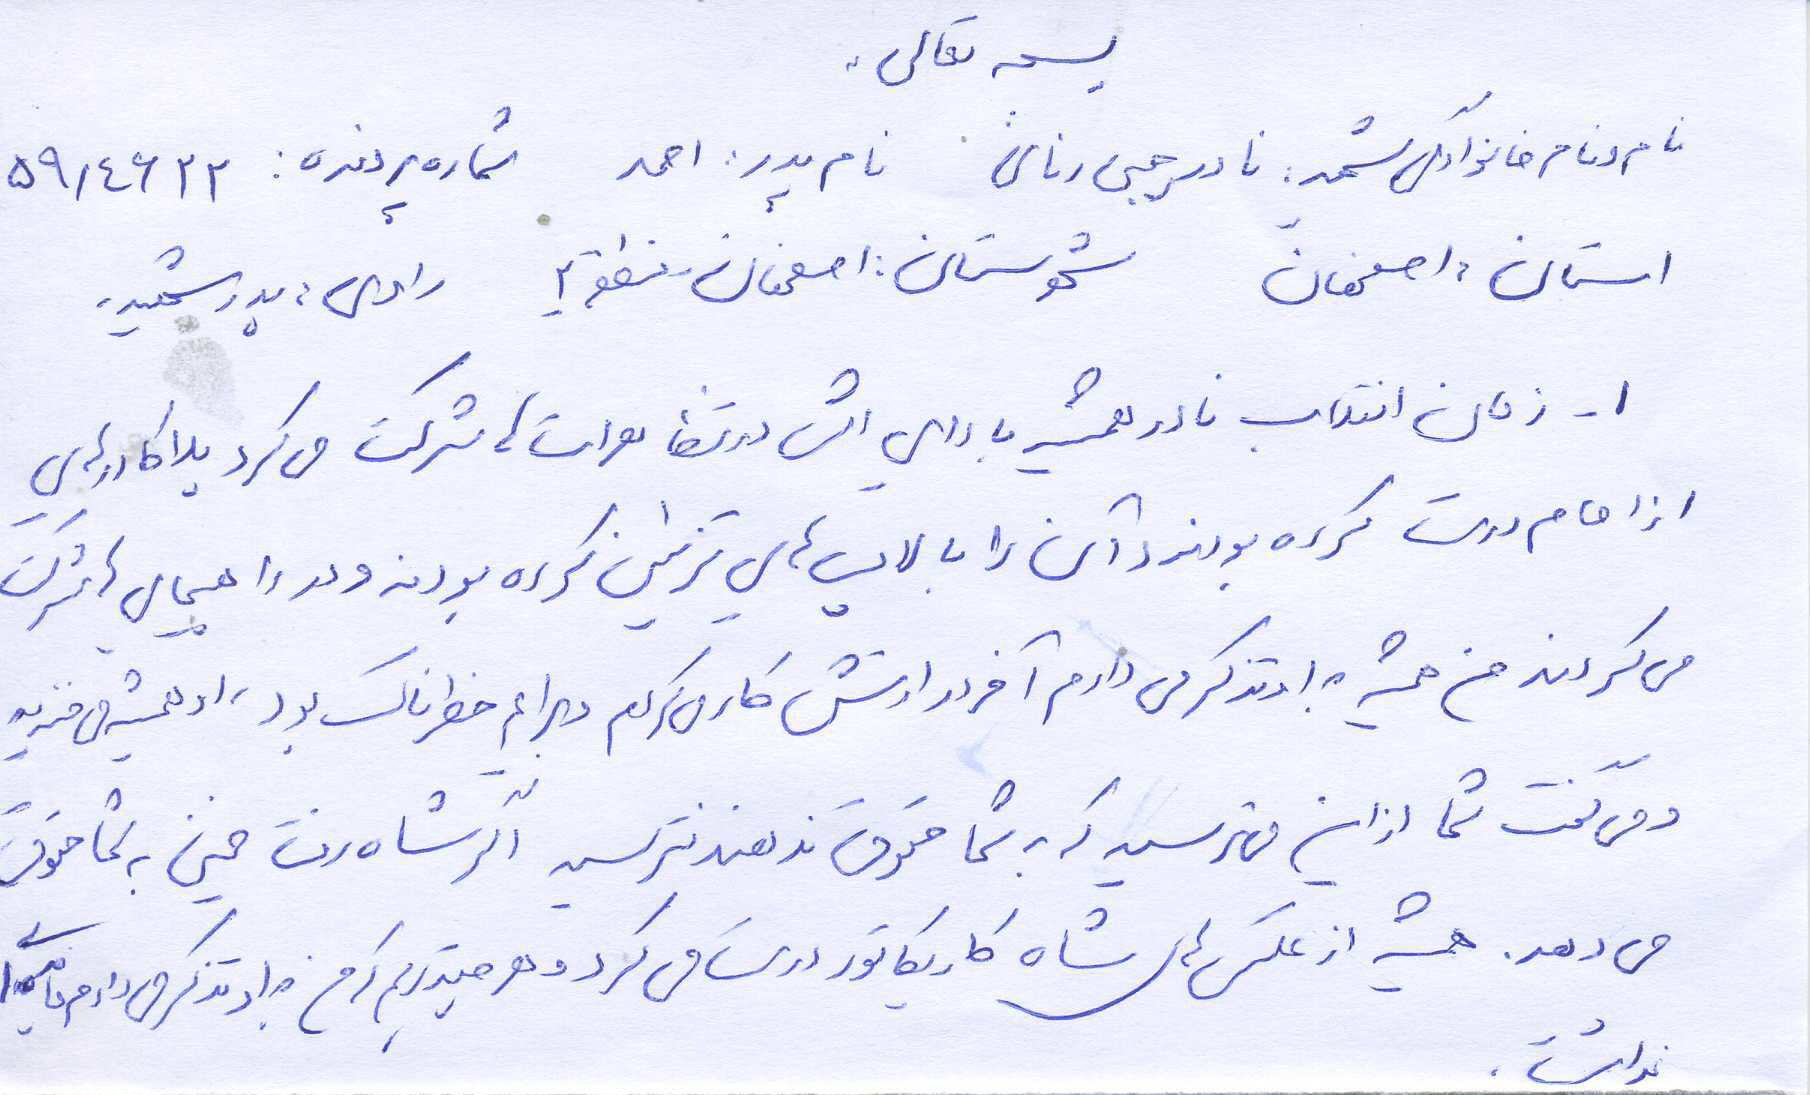 بسمه تعالی
نام و نام خانوادگی شهید: نادر رجبی رنانی نام پدر: احمد شماره پرونده: ۵۹/۴۶۲۲
استان: اصفهان شهرستان: اصفهان منطقه ۲ راوی: پدر شهید
۱- زمان انقلاب نادر همیشه با دایی اش در تظاهرات ها شرکت می کرد پلاکاردهایی
از امام درست کرده بودند و آن را با لامپ هایی تزئین کرده بودند و در راهپیمایی ها شرکت
می کردند من همیشه به او تذکر می دادم آخر در ارتش کار می کردم و برایم خطرناک بود، او همیشه می خندید
و می گفت شما از این می ترسید که به شما حقوق ندهند نترسید اگر شاه رفت خمینی به شما حقوق
می دهد. همیشه از عکس های شاه کاریکاتور درست می کرد و هر چقدر هم که من به او تذکر می دادم فایده ای
نداشت.